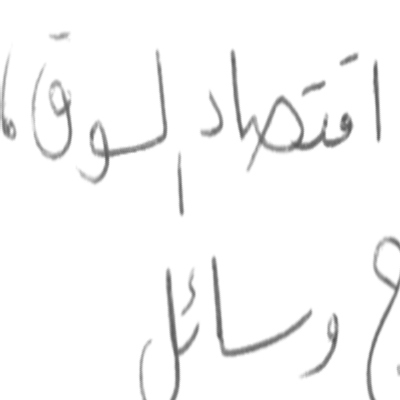 اقتصاد السوق،
وسائل